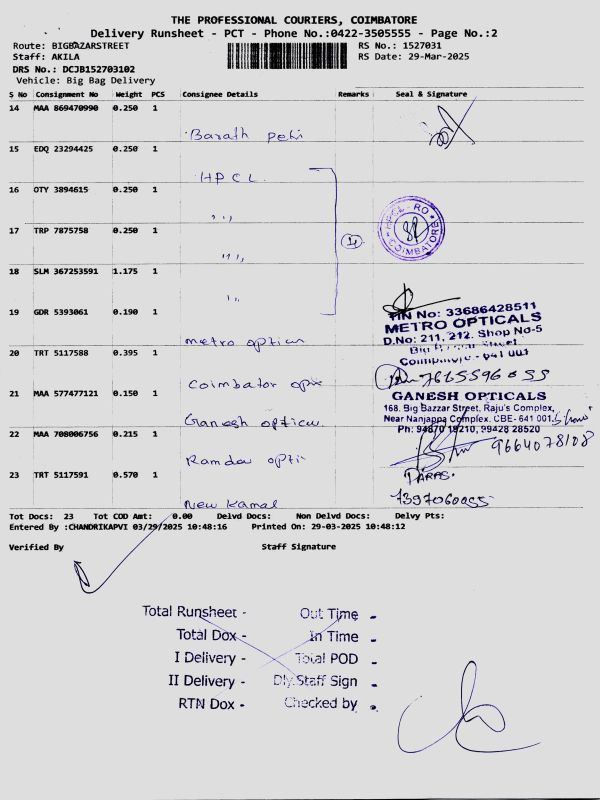 THE PROFESSIONAL COURIERS, COIMBATORE
Delivery Runsheet - PCT - Phone No.:0422-3505555 - Page No.:2
Route: BIGBAZARSTREET
Staff: AKILA
DRS No.: DCJB152703102
Vehicle: Big Bag Delivery
RS No.: 1527031
RS Date: 29-Mar-2025
S No Consignment No Weight PCS Consignee Details Remarks Seal & Signature
14 MAA 869470990 0.250 1
Barath
15 EDQ 23294425 0.250 1
HPCL
16 OTY 3894615 0.250 1
,,,
17 TRP 7875758 0.250 1
,,,
18 SLM 367253591 1.175 1
,,
4
HPCL-RO
COIMBATORE
19 GDR 5393061 0.190 1
metro
TIN No: 33686428511
METRO OPTICALS
D.No: 211, 212. Shop No-5
Big Street
Coimbatore - 641 001
20 TRT 5117588 0.395 1
Coimbator
21 MAA 577477121 0.150 1
Ganesh
GANESH OPTICALS
168, Big Bazzar Street, Raju's Complex,
Near Nanjappa Complex. CBE- 641 001.
Ph: 94870 19210, 99428 28520
22 MAA 708006756 0.215 1
Ramdav
9664078108
23 TRT 5117591 0.570 1
PARAS.
7397060055
New Kamal
Tot Docs: 23 Tot COD Amt: 0.00 Delvd Docs: Non Delvd Docs: Delvy Pts:
Entered By :CHANDRIKAPVI 03/29/2025 10:48:16 Printed On: 29-03-2025 10:48:12
Verified By Staff Signature
Total Runsheet - Out Time -
Total Dox - In Time -
I Delivery - Total POD -
II Delivery - Dly.Staff Sign -
RTN Dox - Checked by -